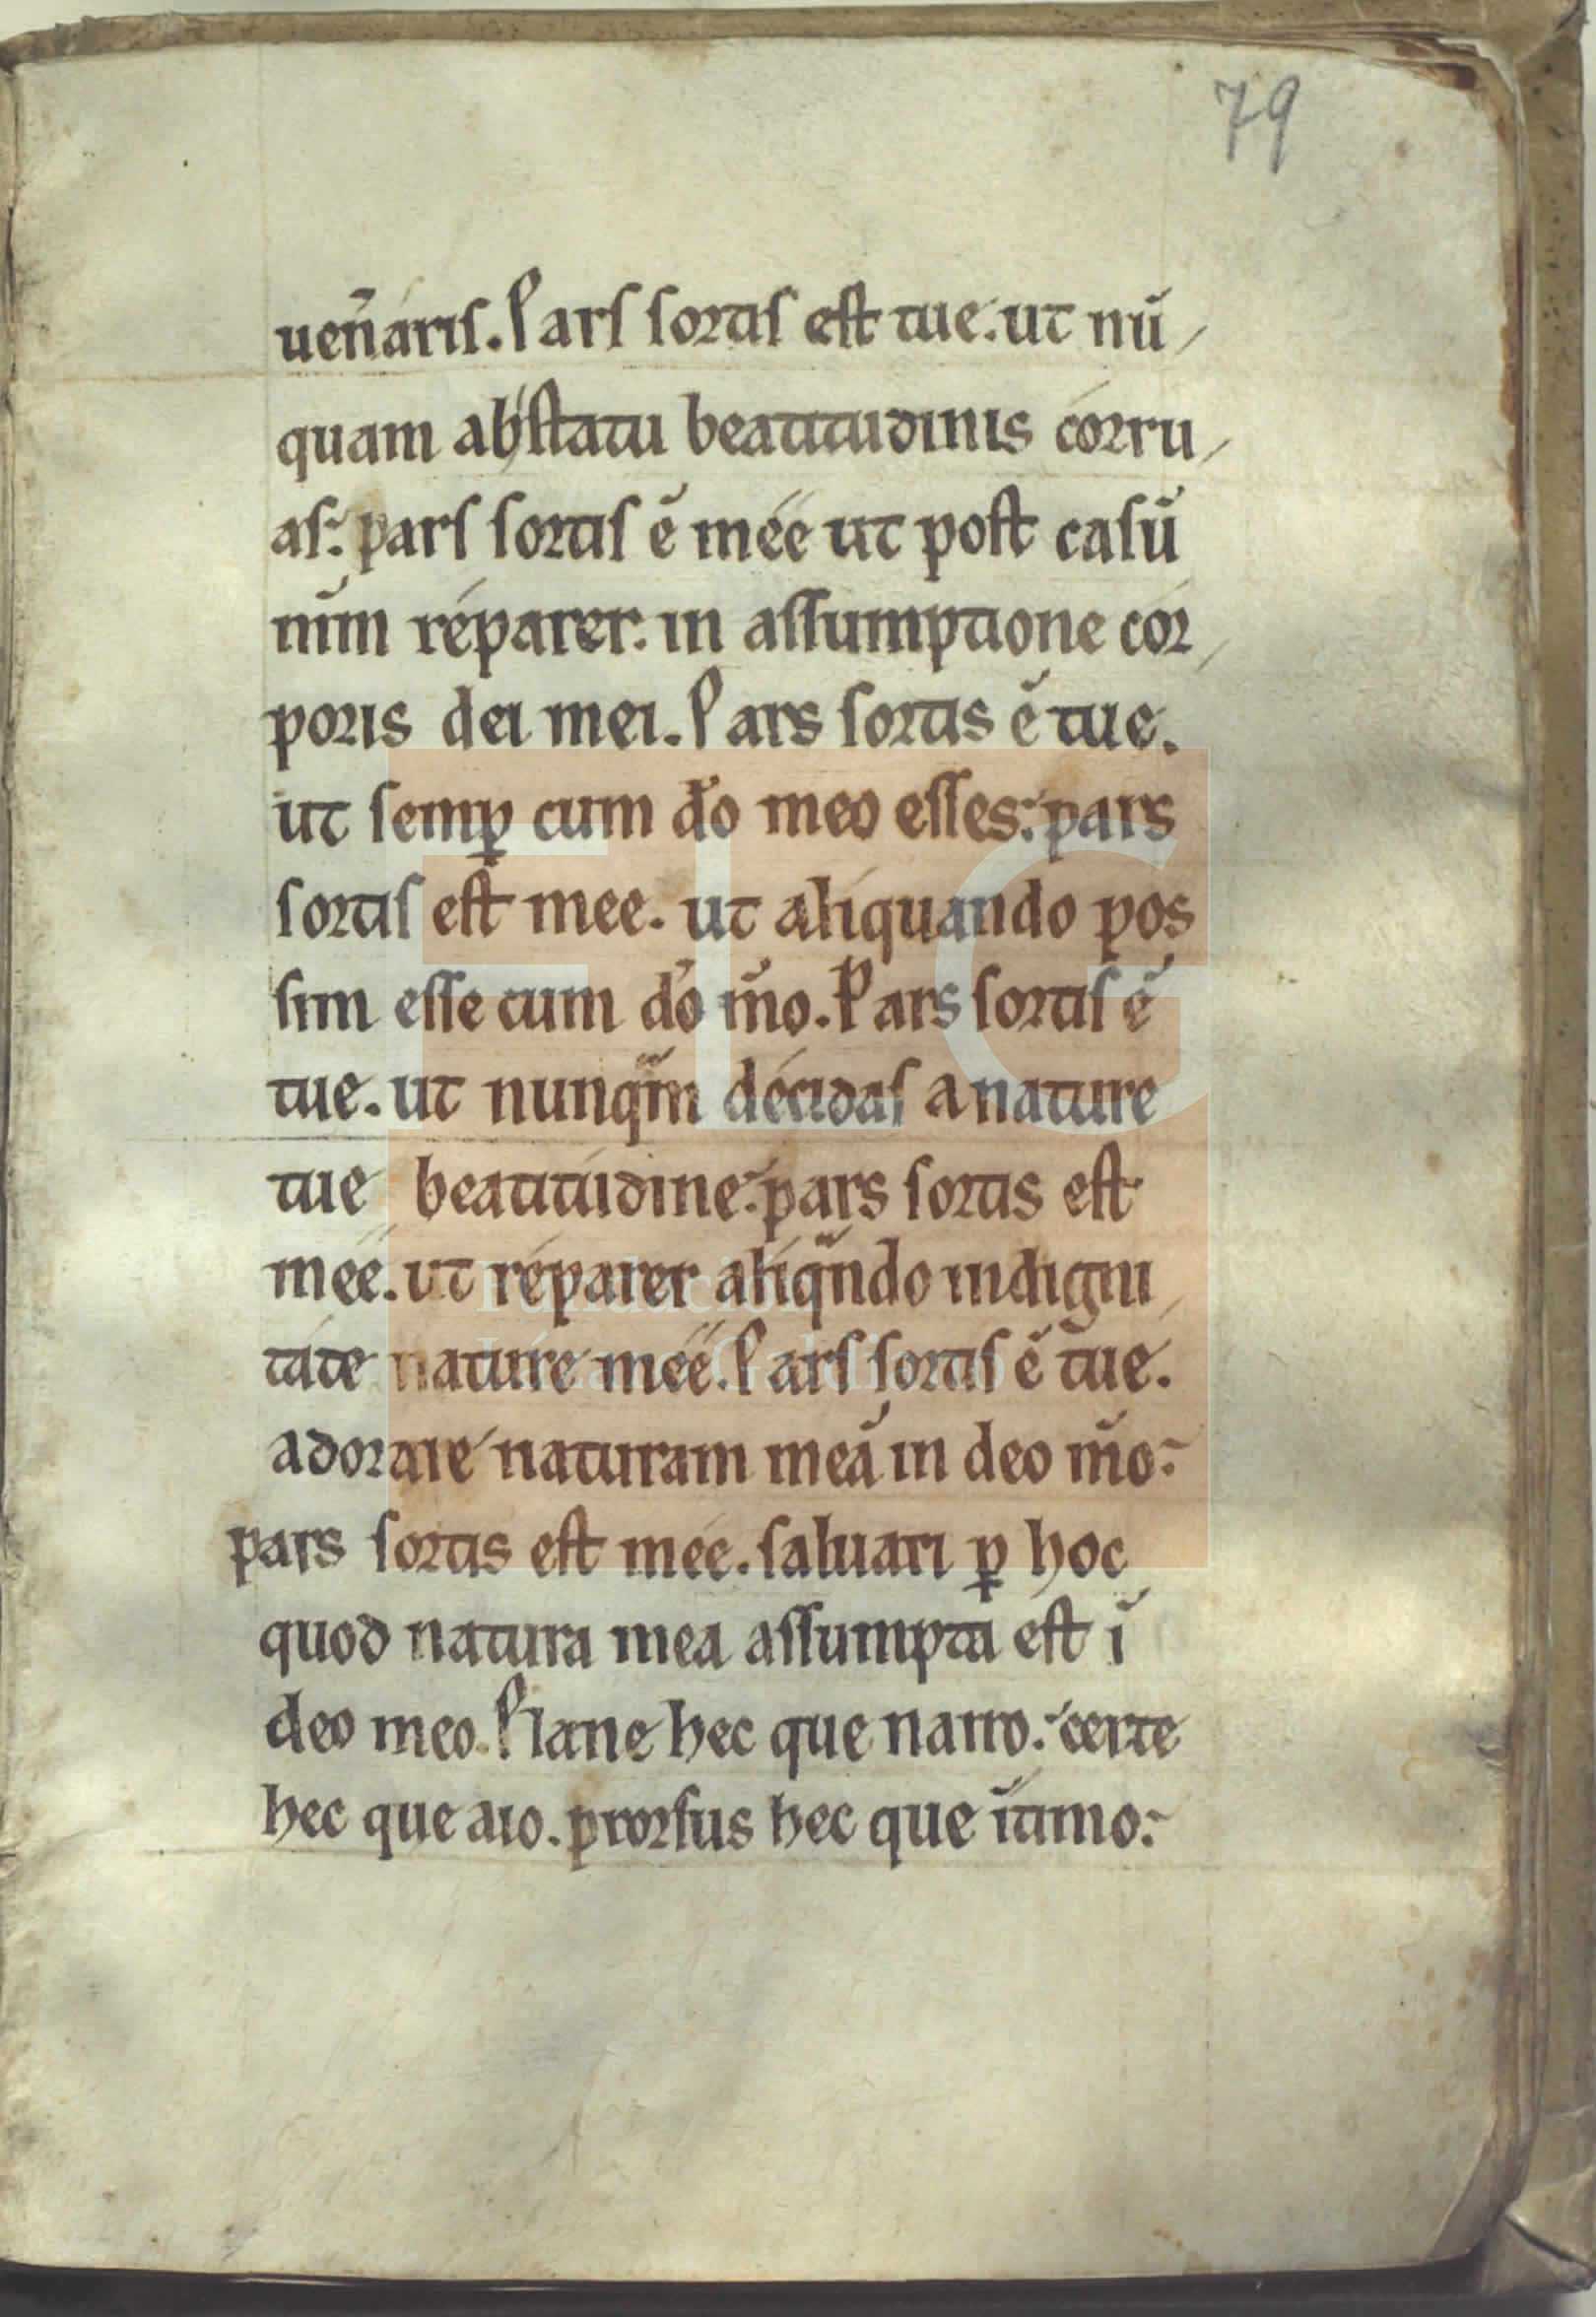 79
uen̄aris. Pars sortis est tue. ut nū
quam ab statu beatitudinis corru
as: pars sortis ē mee ut post casū
nim reparer. in assumptione cor
poris dei mei. Pars sortis ē tue.
ut semꝑ cum dō meo esses: pars
sortis est mee. ut aliquando pos
sim esse cum dō mō. Pars sortis ē
tue. ut nunqm̄ decidas a nature
tue beatitudine: pars sortis est
mee. ut reparer aliqn̄do indigni
tate nature mee. Pars sortis ē tue.
adorare naturam meā in deo mō:
pars sortis est mee. saluari ꝑ hoc
quod natura mea assumpta est ī
deo meo. Plane hec que narro: certe
hec que aio. prorsus hec que ītimo: